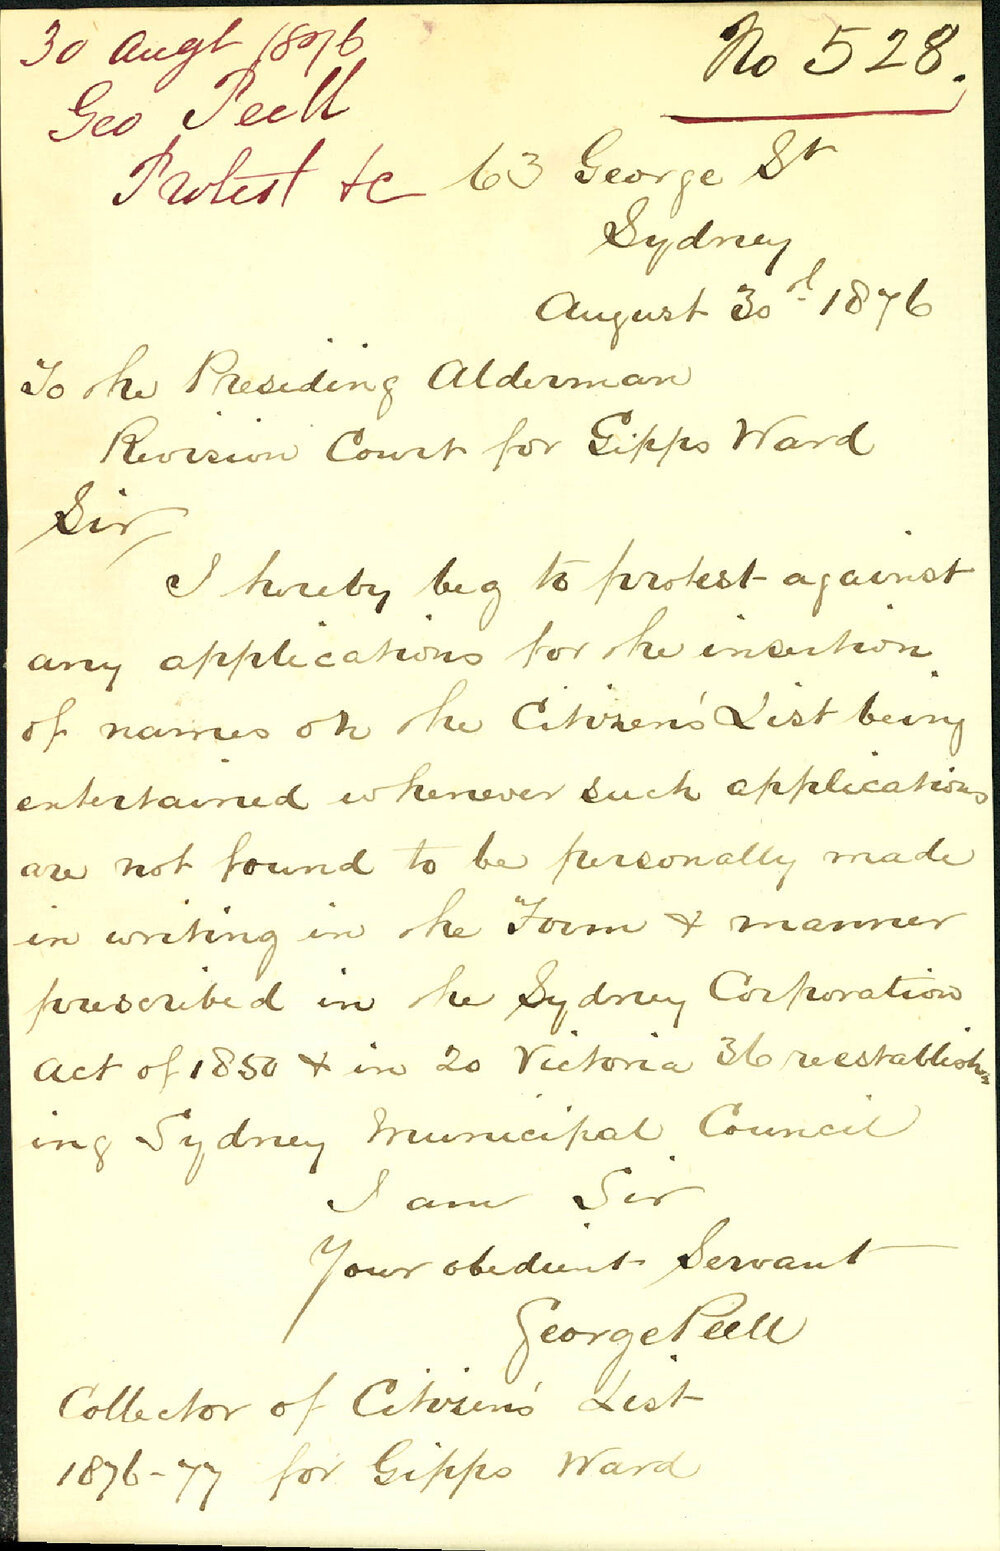 30 Augt 1876
Geo Peell
Protest &c
No 528.
63 George St
Sydney
August 30th 1876
To the Presiding Alderman
Revision Court for Gipps Ward
Sir
I hereby beg to protest against
any applications for the insertion
of names on the Citizen's List being
entertained whenever such applications
are not found to be personally made
in writing in the Form & manner
prescribed in the Sydney Corporation
Act of 1850 & in 20 Victoria 36 reestablish
ing Sydney Municipal Council
I am Sir
Your obedient Servant
George Peell
Collector of Citizen's List
1876-77 for Gipps Ward